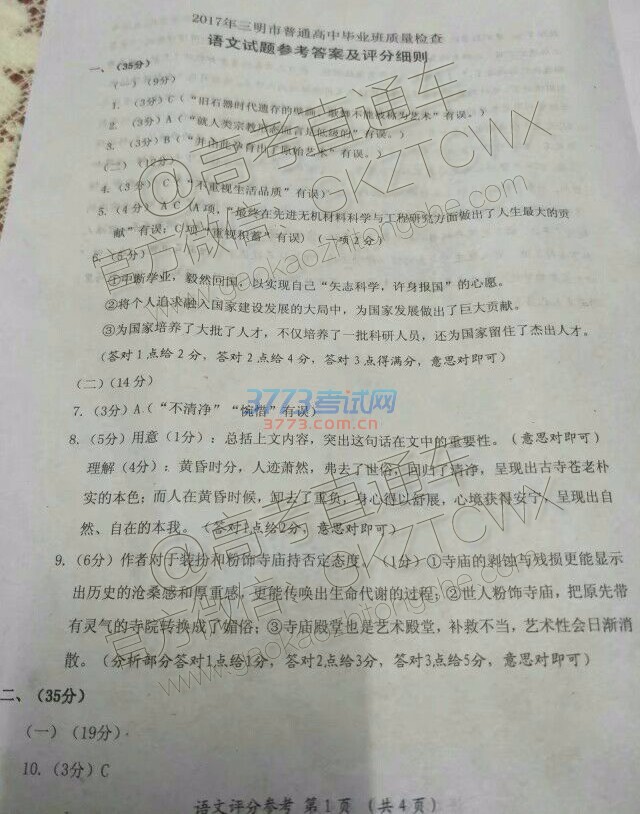 2017年三明市普通高中毕业班质量检查
语文试题参考答案及评分细则
一、(35分)
(一)(9分)
1.(3分)C("旧石器时代遗存的壁画、歌舞不能被称为艺术"有误。)
2.(3分)A("就人类宗教形态而言是低级的"有误。)
3.(3分)B("并由此孕育出了原始艺术"有误。)
(二)(12分)
4.(3分) C("不重视生活品质"有误)
5.(4分) A C(A项,"最终在先进无机材料科学与工程研究方面做出了人生最大的贡
献"有误;C项"重视积蓄"有误)(一项2分)
6.(5分)
①中断学业,毅然回国,以实现自己"矢志科学,许身报国"的心愿。
②将个人追求融入国家建设发展的大局中,为国家发展做出了巨大贡献。
③为国家培养了大批了人才,不仅培养了一批科研人员,还为国家留住了杰出人才。
(答对1点给2分,答对2点给4分,答对3点得满分,意思对即可)
(二)(14分)
7.(3分)A("不清净""惋惜"有误)
8.(5分)用意(1分):总括上文内容,突出这句话在文中的重要性。(意思对即可)
理解(4分):黄昏时分,人迹萧然,弗去了世俗,回归了清净,呈现出古寺苍老朴
实的本色;而人在黄昏时候,卸去了重负,身心得以舒展,心境获得安宁,呈现出自
然、自在的本我。(答对1点给2分,意思对即可)
9.(6分)作者对于装扮和粉饰寺庙持否定态度。(1分)①寺庙的剥蚀与残损更能显示
出历史的沧桑感和厚重感,更能传唤出生命代谢的过程;②世人粉饰寺庙,把原先带
有灵气的寺院转换成了媚俗;③寺庙殿堂也是艺术殿堂,补救不当,艺术性会日渐消
散。(分析部分答对1点给1分,答对2点给3分,答对3点给5分,意思对即可)
二、(35分)
(一)(19分)
10.(3分)C
语文评分参考 第1页 (共4页)
@高考直通车
官方微信:GKZTCWX
www.gaokaozhitongche.com
3773考试网
3773.com.cn
@高考直通车
官方微信:GKZTCWX
www.gaokaozhitongche.com